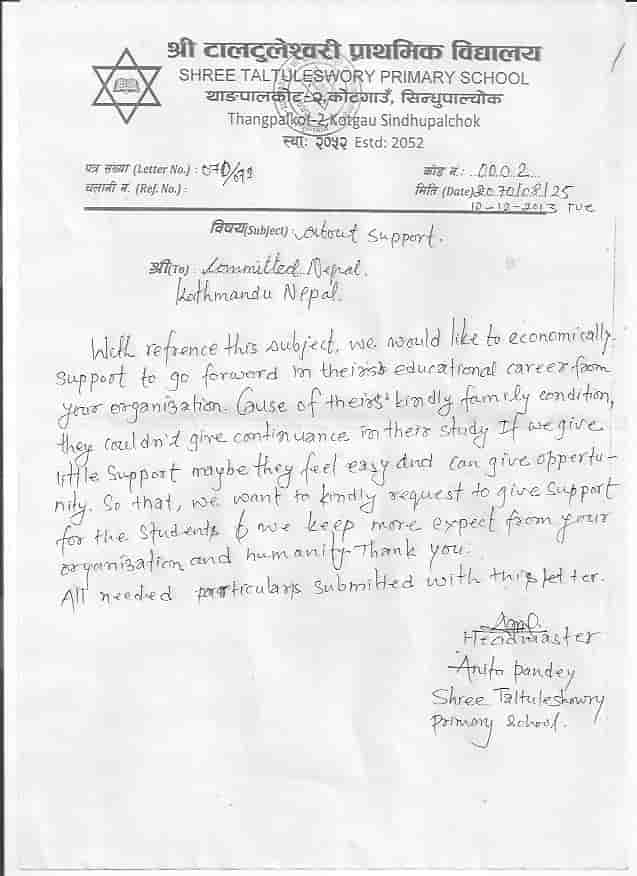 श्री टालटुलेश्वरी प्राथमिक विद्यालय
SHREE TALTULESWORY PRIMARY SCHOOL
थाङपालकोट-२,कोटगाउँ, सिन्धुपाल्चोक
Thangpalkot-2,Kotgau Sindhupalchok
स्था: २०५२ Estd: 2052
पत्र संख्या (Letter No.) : 070/071
कोड नं.: 0002
चलानी नं. (Ref. No.) :
मिति (Date) 2070/08/25
10-12-2013 Tue
विषय(Subject) About Support.
श्री(To) Committed Nepal.
Kathmandu Nepal.
With refrence this subject, we would like to economically
support to go forword in theirs educational career from
your organization. Cause of theirs kindly family condition,
they couldn't give continuance in their study If we give
little support maybe they feel easy and can give opportu-
nity. So that, we want to kindly request to give support
for the students & we keep more expect from your
organization and humanity. Thank you.
All needed particulars submitted with this letter.
Headmaster
Anita Pandey
Shree Taltuleshowry
Primary School.